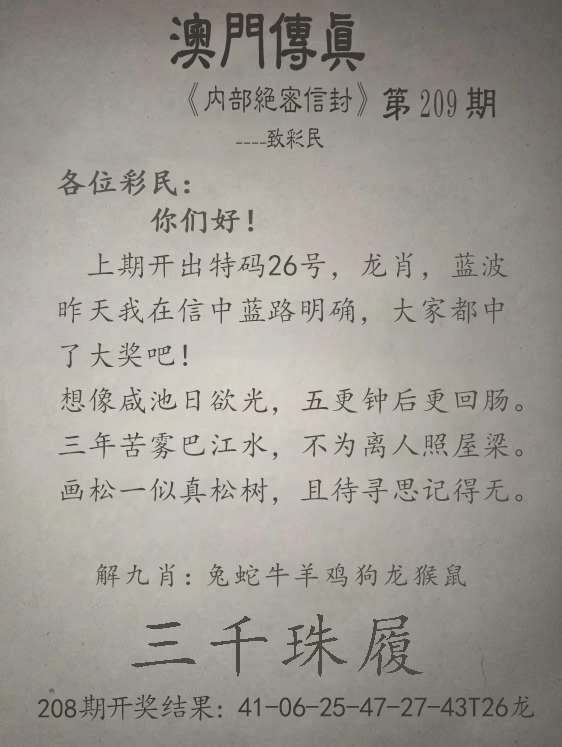 澳門傳眞
《内部絕密信封》第209期
----致彩民
各位彩民：
你们好！
上期开出特码26号，龙肖，蓝波
昨天我在信中蓝路明确，大家都中
了大奖吧！
想像咸池日欲光，五更钟后更回肠。
三年苦雾巴江水，不为离人照屋梁。
画松一似真松树，且待寻思记得无。
解九肖：兔蛇牛羊鸡狗龙猴鼠
三千珠履
208期开奖结果：41-06-25-47-27-43T26龙